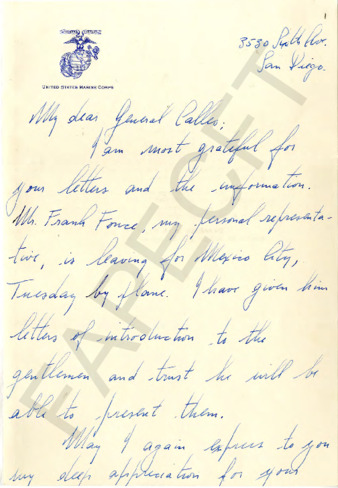 1
3530 Sixth Ave.
San Diego.
UNITED STATES MARINE CORPS
My dear General Calles,
I am most grateful for
your letters and the information.
Mr. Frank Fouce, my personal representa-
tive, is leaving for Mexico City,
Tuesday by plane. I have given him
letters of introduction to the
gentlemen and trust he will be
able to present them.
May I again express to you
my deep appreciation for your
FAPECFT